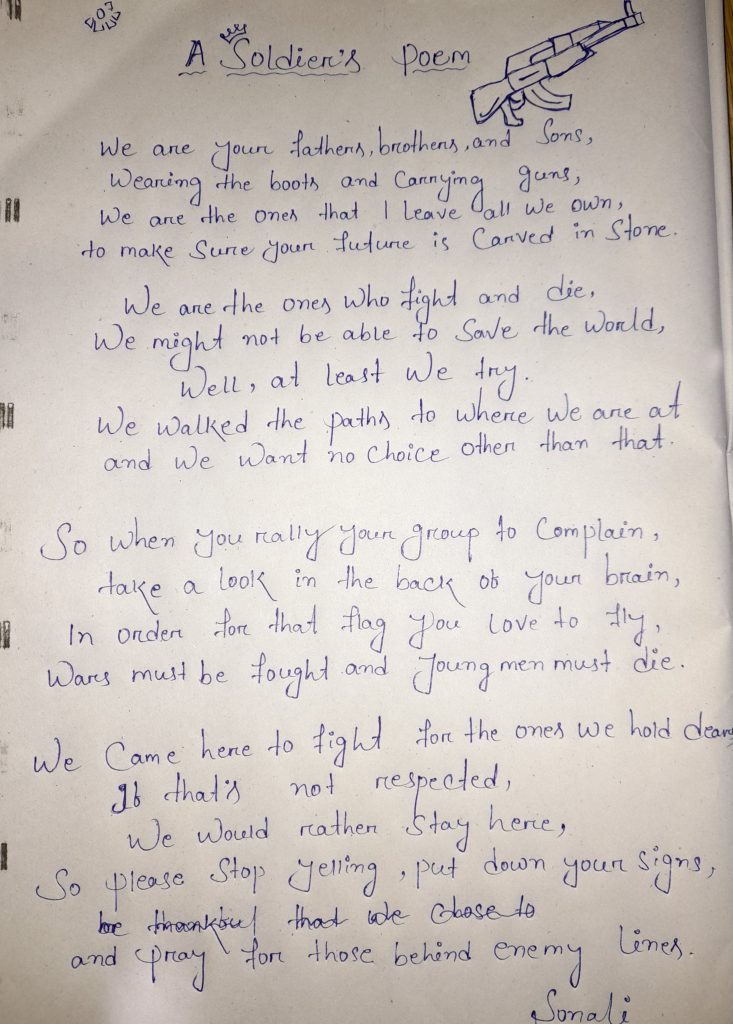 A Soldier's Poem
We are your fathers, brothers, and Sons,
Wearing the boots and Carrying guns,
We are the ones that I Leave all we own,
to make Sure your future is Carved in Stone.
We are the ones who fight and die,
We might not be able to Save the World,
Well, at least We try.
We walked the paths to where we are at
and we want no choice other than that.
So when you rally your group to Complain,
take a look in the back of your brain,
In order for that flag you Love to fly,
Wars must be fought and young men must die.
We Came here to fight for the ones we hold dear,
If that's not respected,
We would rather Stay here,
So please Stop yelling, put down your Signs,
be thankful that we chose to
and pray for those behind enemy lines.
Sonali